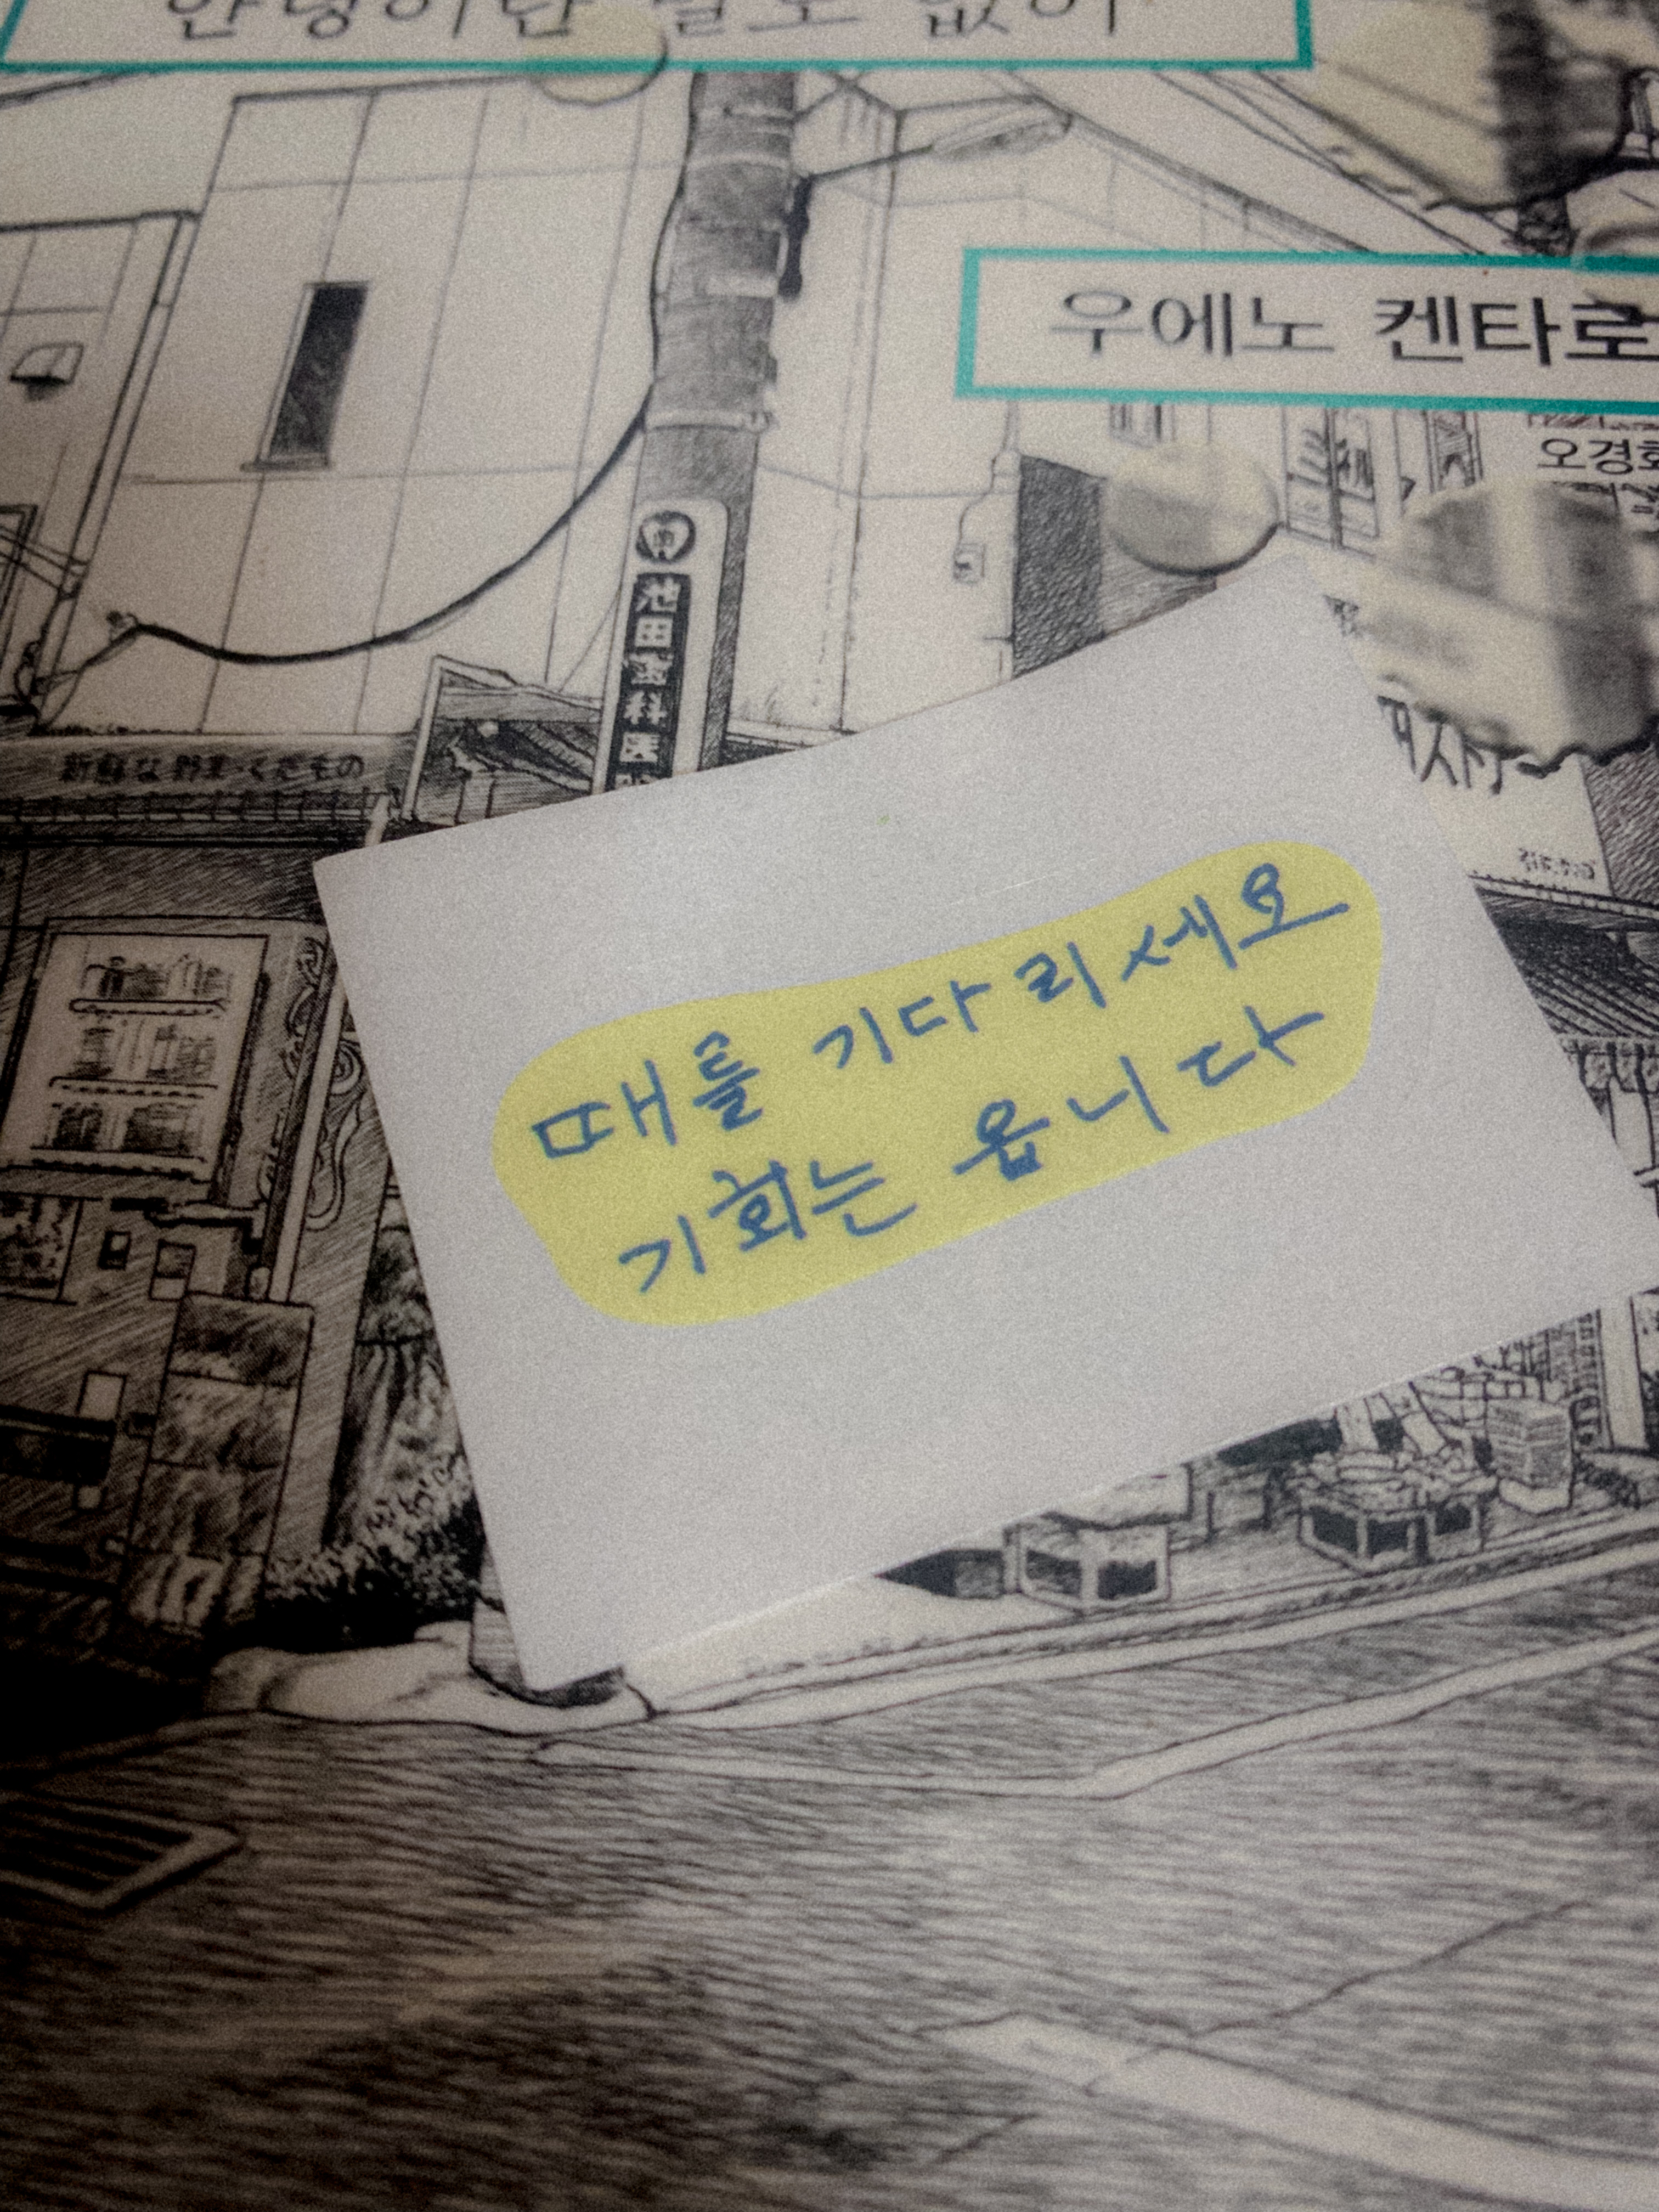 안녕이란 말도 없이
우에노 켄타로
오경화
池田歯科医
新鮮な野菜・くだもの
때를 기다리세요
기회는 옵니다